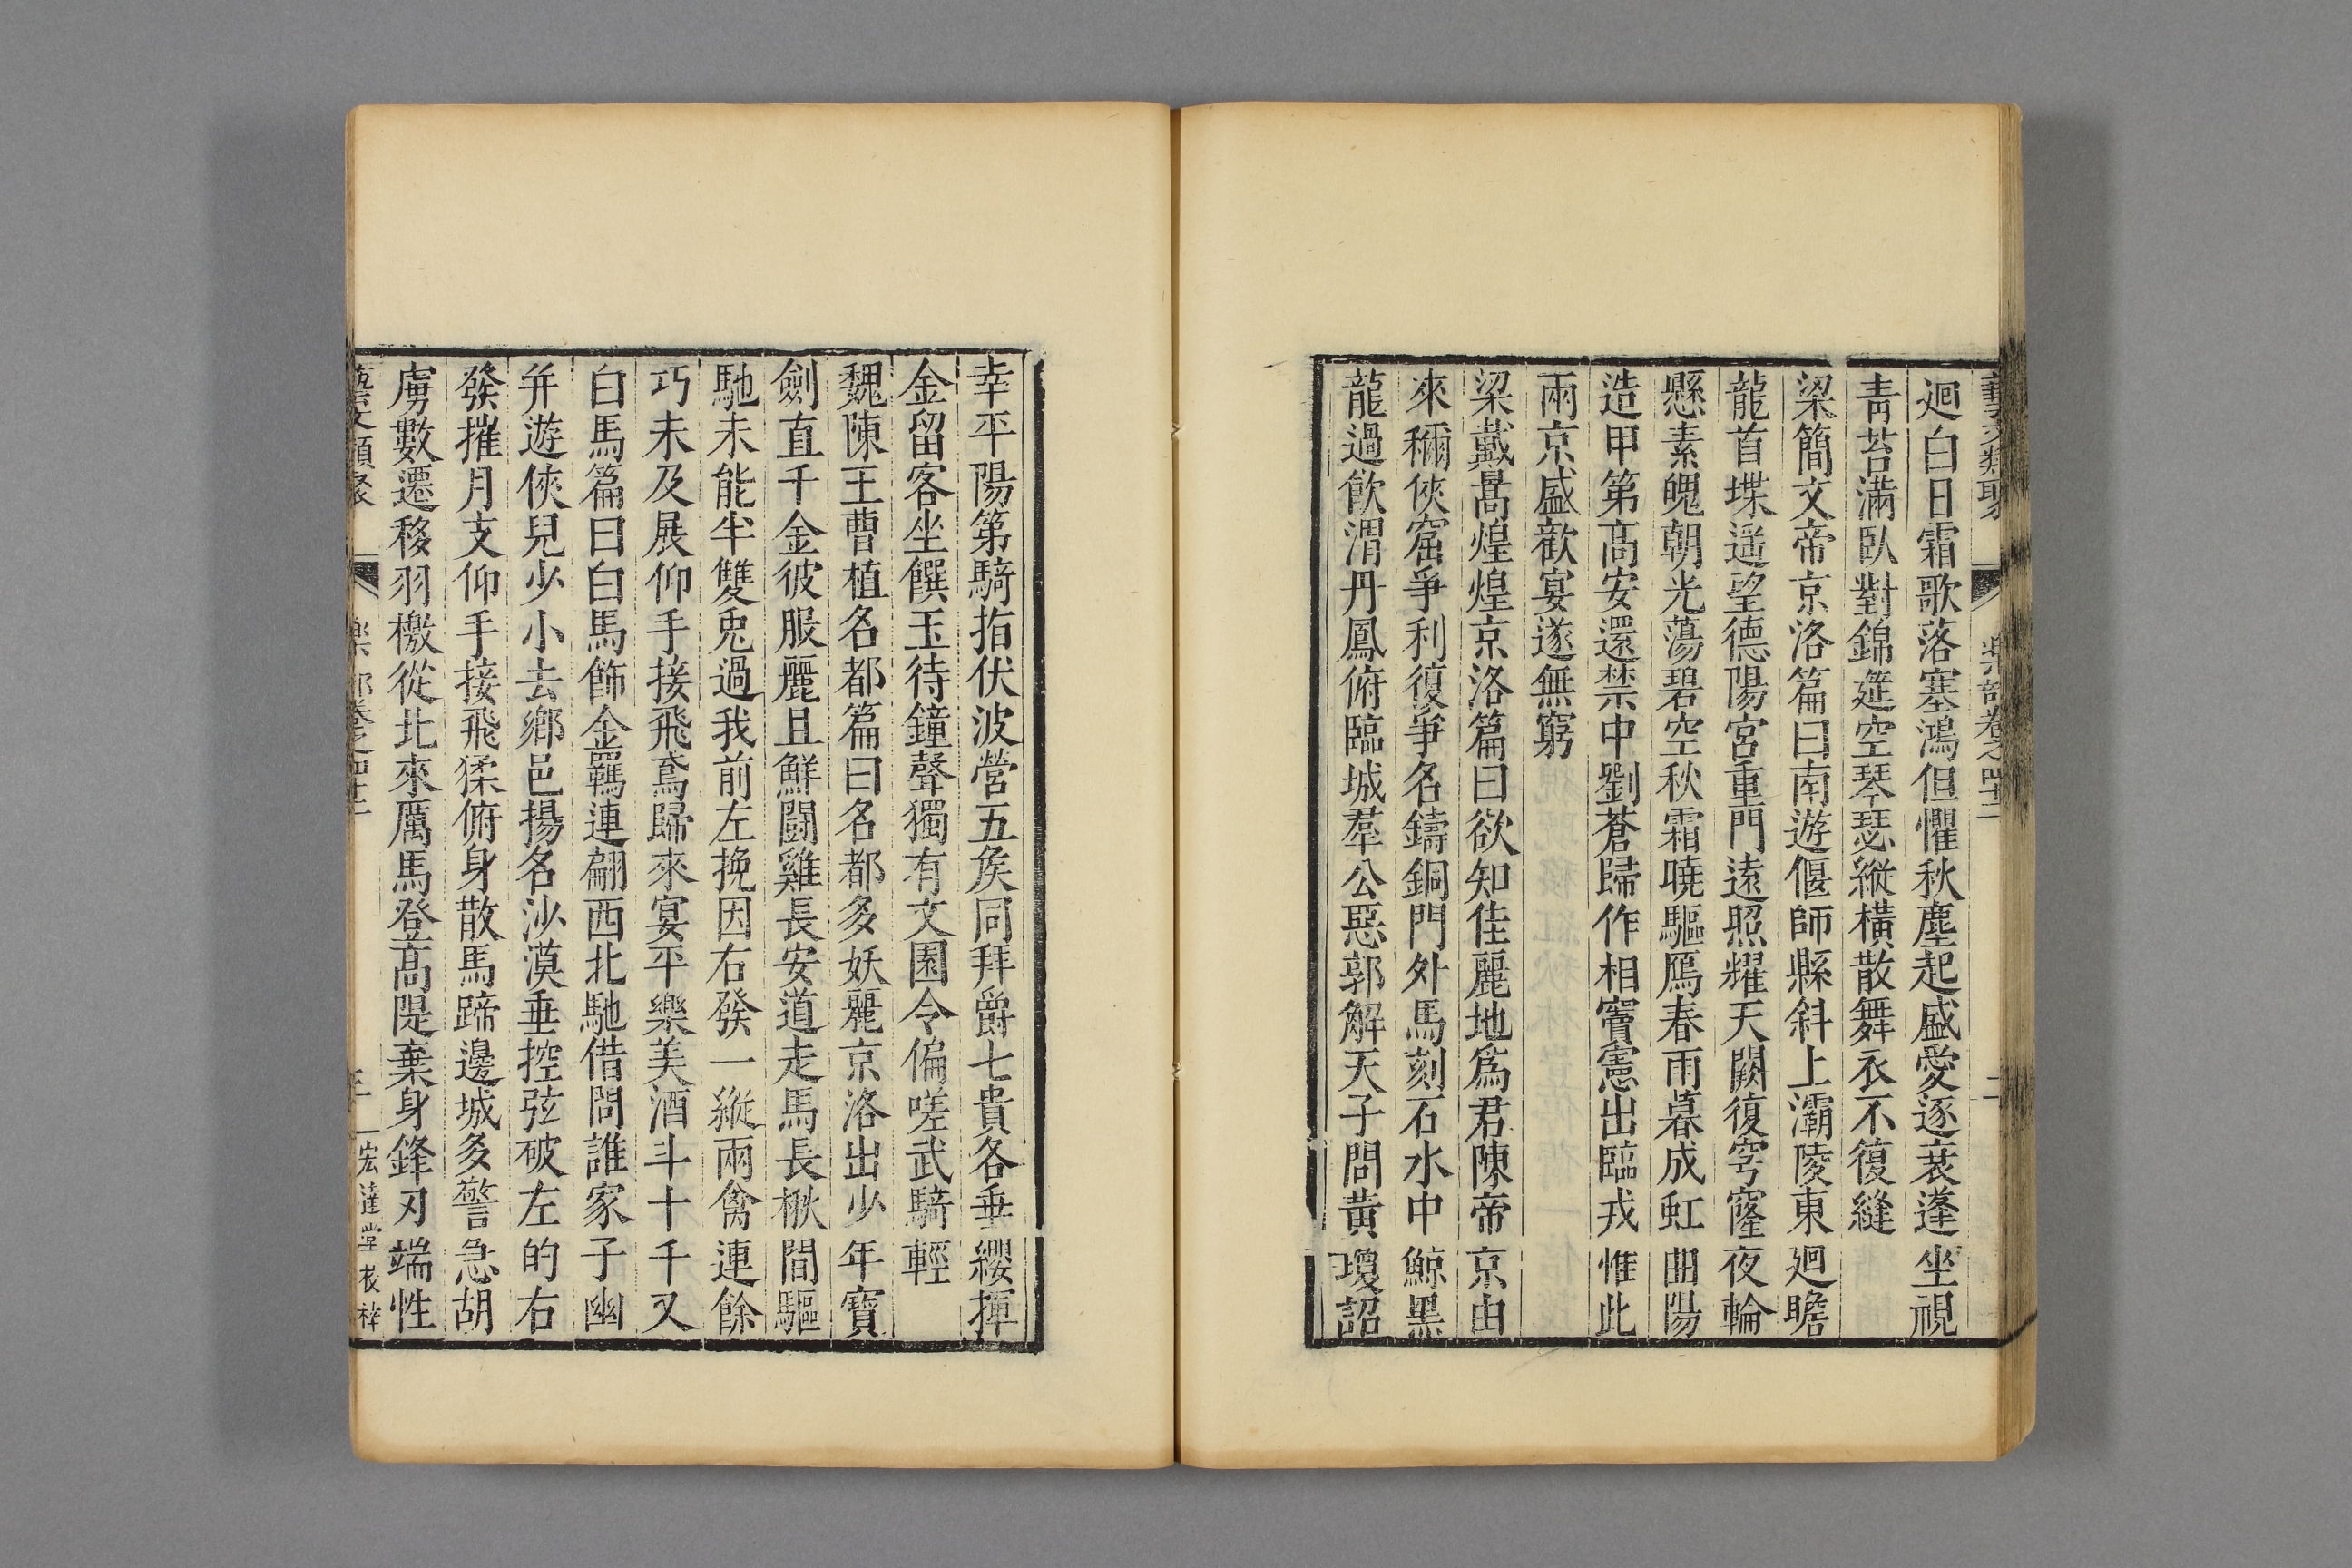 藝文類聚 樂部卷之四十二 二
迴白日霜歌落塞鴻但懼秋塵起盛愛逐衰蓬坐視
青苔滿臥對錦筵空琴瑟縱橫散舞衣不復縫
梁簡文帝京洛篇曰南遊偃師縣斜上灞陵東廻瞻
龍首堞遥望德陽宮重門遠照耀天闕復穹窿夜輪
懸素魄朝光蕩碧空秋霜曉驅鴈春雨暮成虹曲陽
造甲第高安還禁中劉蒼歸作相竇憲出臨戎惟此
兩京盛歡宴遂無窮
梁戴暠煌煌京洛篇曰欲知佳麗地爲君陳帝京由
來稱俠窟爭利復爭名鑄銅門外馬刻石水中鯨黑
龍過飲渭丹鳳俯臨城羣公惡郭解天子問黃瓊詔
幸平陽第騎指伏波營五矦同拜爵七貴各垂纓揮
金留客坐饌玉待鐘聲獨有文園令偏嗟武騎輕
魏陳王曹植名都篇曰名都多妖麗京洛出少年寶
劍直千金彼服麗且鮮鬪雞長安道走馬長楸間驅
馳未能半雙兎過我前左挽因右發一縱兩禽連餘
巧未及展仰手接飛鳶歸來宴平樂美酒斗十千又
白馬篇曰白馬飾金羈連翩西北馳借問誰家子幽
并遊俠兒少小去鄉邑揚名沙漠垂控弦破左的右
發摧月支仰手接飛猱俯身散馬蹄邊城多警急胡
虜數遷移羽檄從北來厲馬登高隄棄身鋒刃端性
藝文類聚 樂部卷之四十二 三 宏達堂校梓